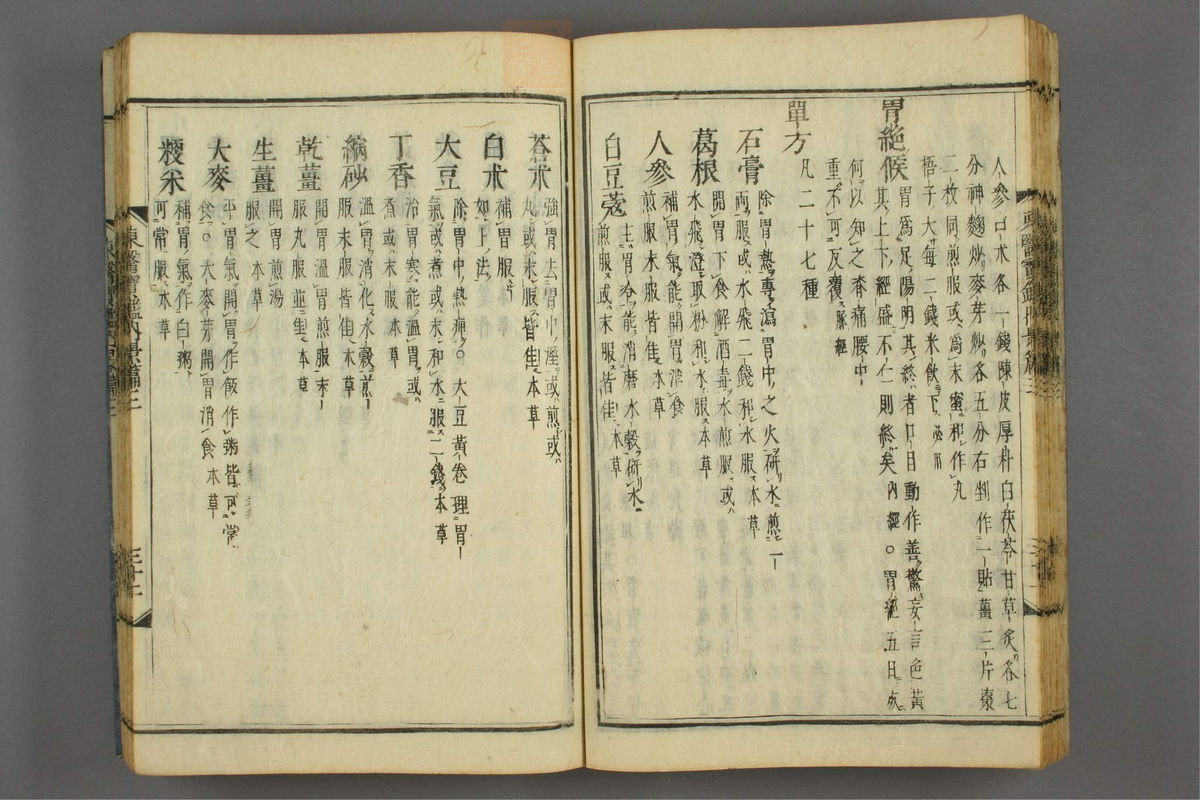 人參白朮各一錢陳皮厚朴白茯苓甘草炙各七
分神麴炒麥芽炒各五分右剉作一貼薑三片棗
二枚同煎服或爲末蜜和作丸
梧子大每二錢米飮下必用
胃絶候
胃爲足陽明其終者口目動作善驚妄言色黃
其上下經盛不仁則終矣內經○胃絶五日死
何以知之脊痛腰中
重不可反覆脉經
單方
凡二十七種
石膏
除胃熱專瀉胃中之火硏水煎一
兩服或水飛二錢和水服本草
葛根
開胃下食解酒毒水煎服或
水飛澄取粉和水服本草
人參
補胃氣能開胃消食
煎服末服皆佳本草
白豆蔲
主胃冷能消磨水穀硏水
煎服或末服皆佳本草
東醫寶鑑內景篇三
蒼朮
強胃去胃中濕或煎或
丸或末服皆佳本草
白朮
補胃服
如上法
大豆
除胃中熱痺○大豆黃卷理胃
氣或煮或末和水服二錢本草
丁香
治胃寒能溫胃或
煮或末服本草
縮砂
溫胃消化水穀煎
服末服皆佳本草
乾薑
開胃溫胃煎服末
服丸服並佳本草
生薑
開胃煎湯
服之本草
大麥
平胃氣開胃作飯作粥皆可常
食○大麥芽開胃消食本草
粳米
補胃氣作白粥
可常服本草